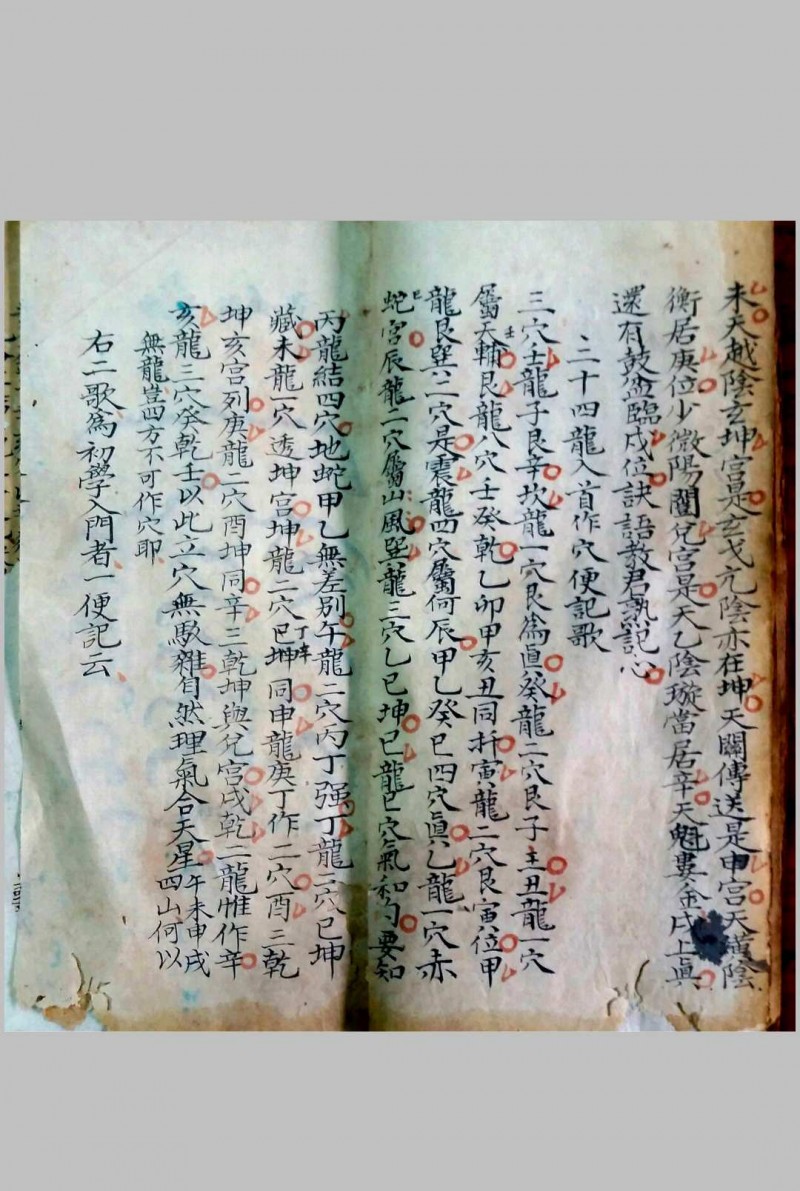 未天越陰玄坤宮是玄戈亢陰亦在坤天關傳送是申宮天潢陰
衡居庚位少微陽闔兌宮是天乙陰璇當居辛天魁婁金戌上眞
還有鼓盆臨戌位訣語教君熟記心
二十四龍入首作穴便記歌
三穴壬龍子艮辛坎龍一穴艮爲眞癸龍二穴艮子主丑龍一穴
屬天輔艮龍八穴壬癸乾乙卯甲亥丑同扦寅龍二穴艮寅位甲
龍艮巽二穴是震龍四穴屬何辰甲乙癸巳四穴眞乙龍一穴赤
蛇宮辰龍二穴屬山風巽龍三穴乙巳坤巳龍巳穴氣和勻要知
丙龍結四穴地蛇甲乙無差別午龍二穴丙丁强丁龍三穴巳坤
藏未龍一穴透坤宮坤龍二穴巳坤同申龍庚丁作二穴酉三乾
坤亥宮列庚龍二穴酉坤同辛三乾坤與兌宮戌乾二龍惟作辛
亥龍三穴癸乾壬以此立穴無駁雜自然理氣合天星午未申戌
四山何以
無龍豈四方不可作穴耶
右二歌爲初學入門者一便記云